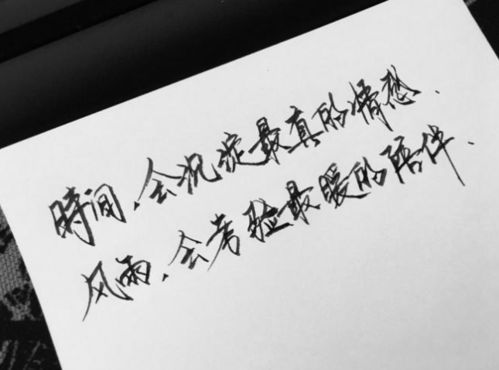 時间，会沉淀最真的情愁．
风雨，会考验最暖的陪伴．